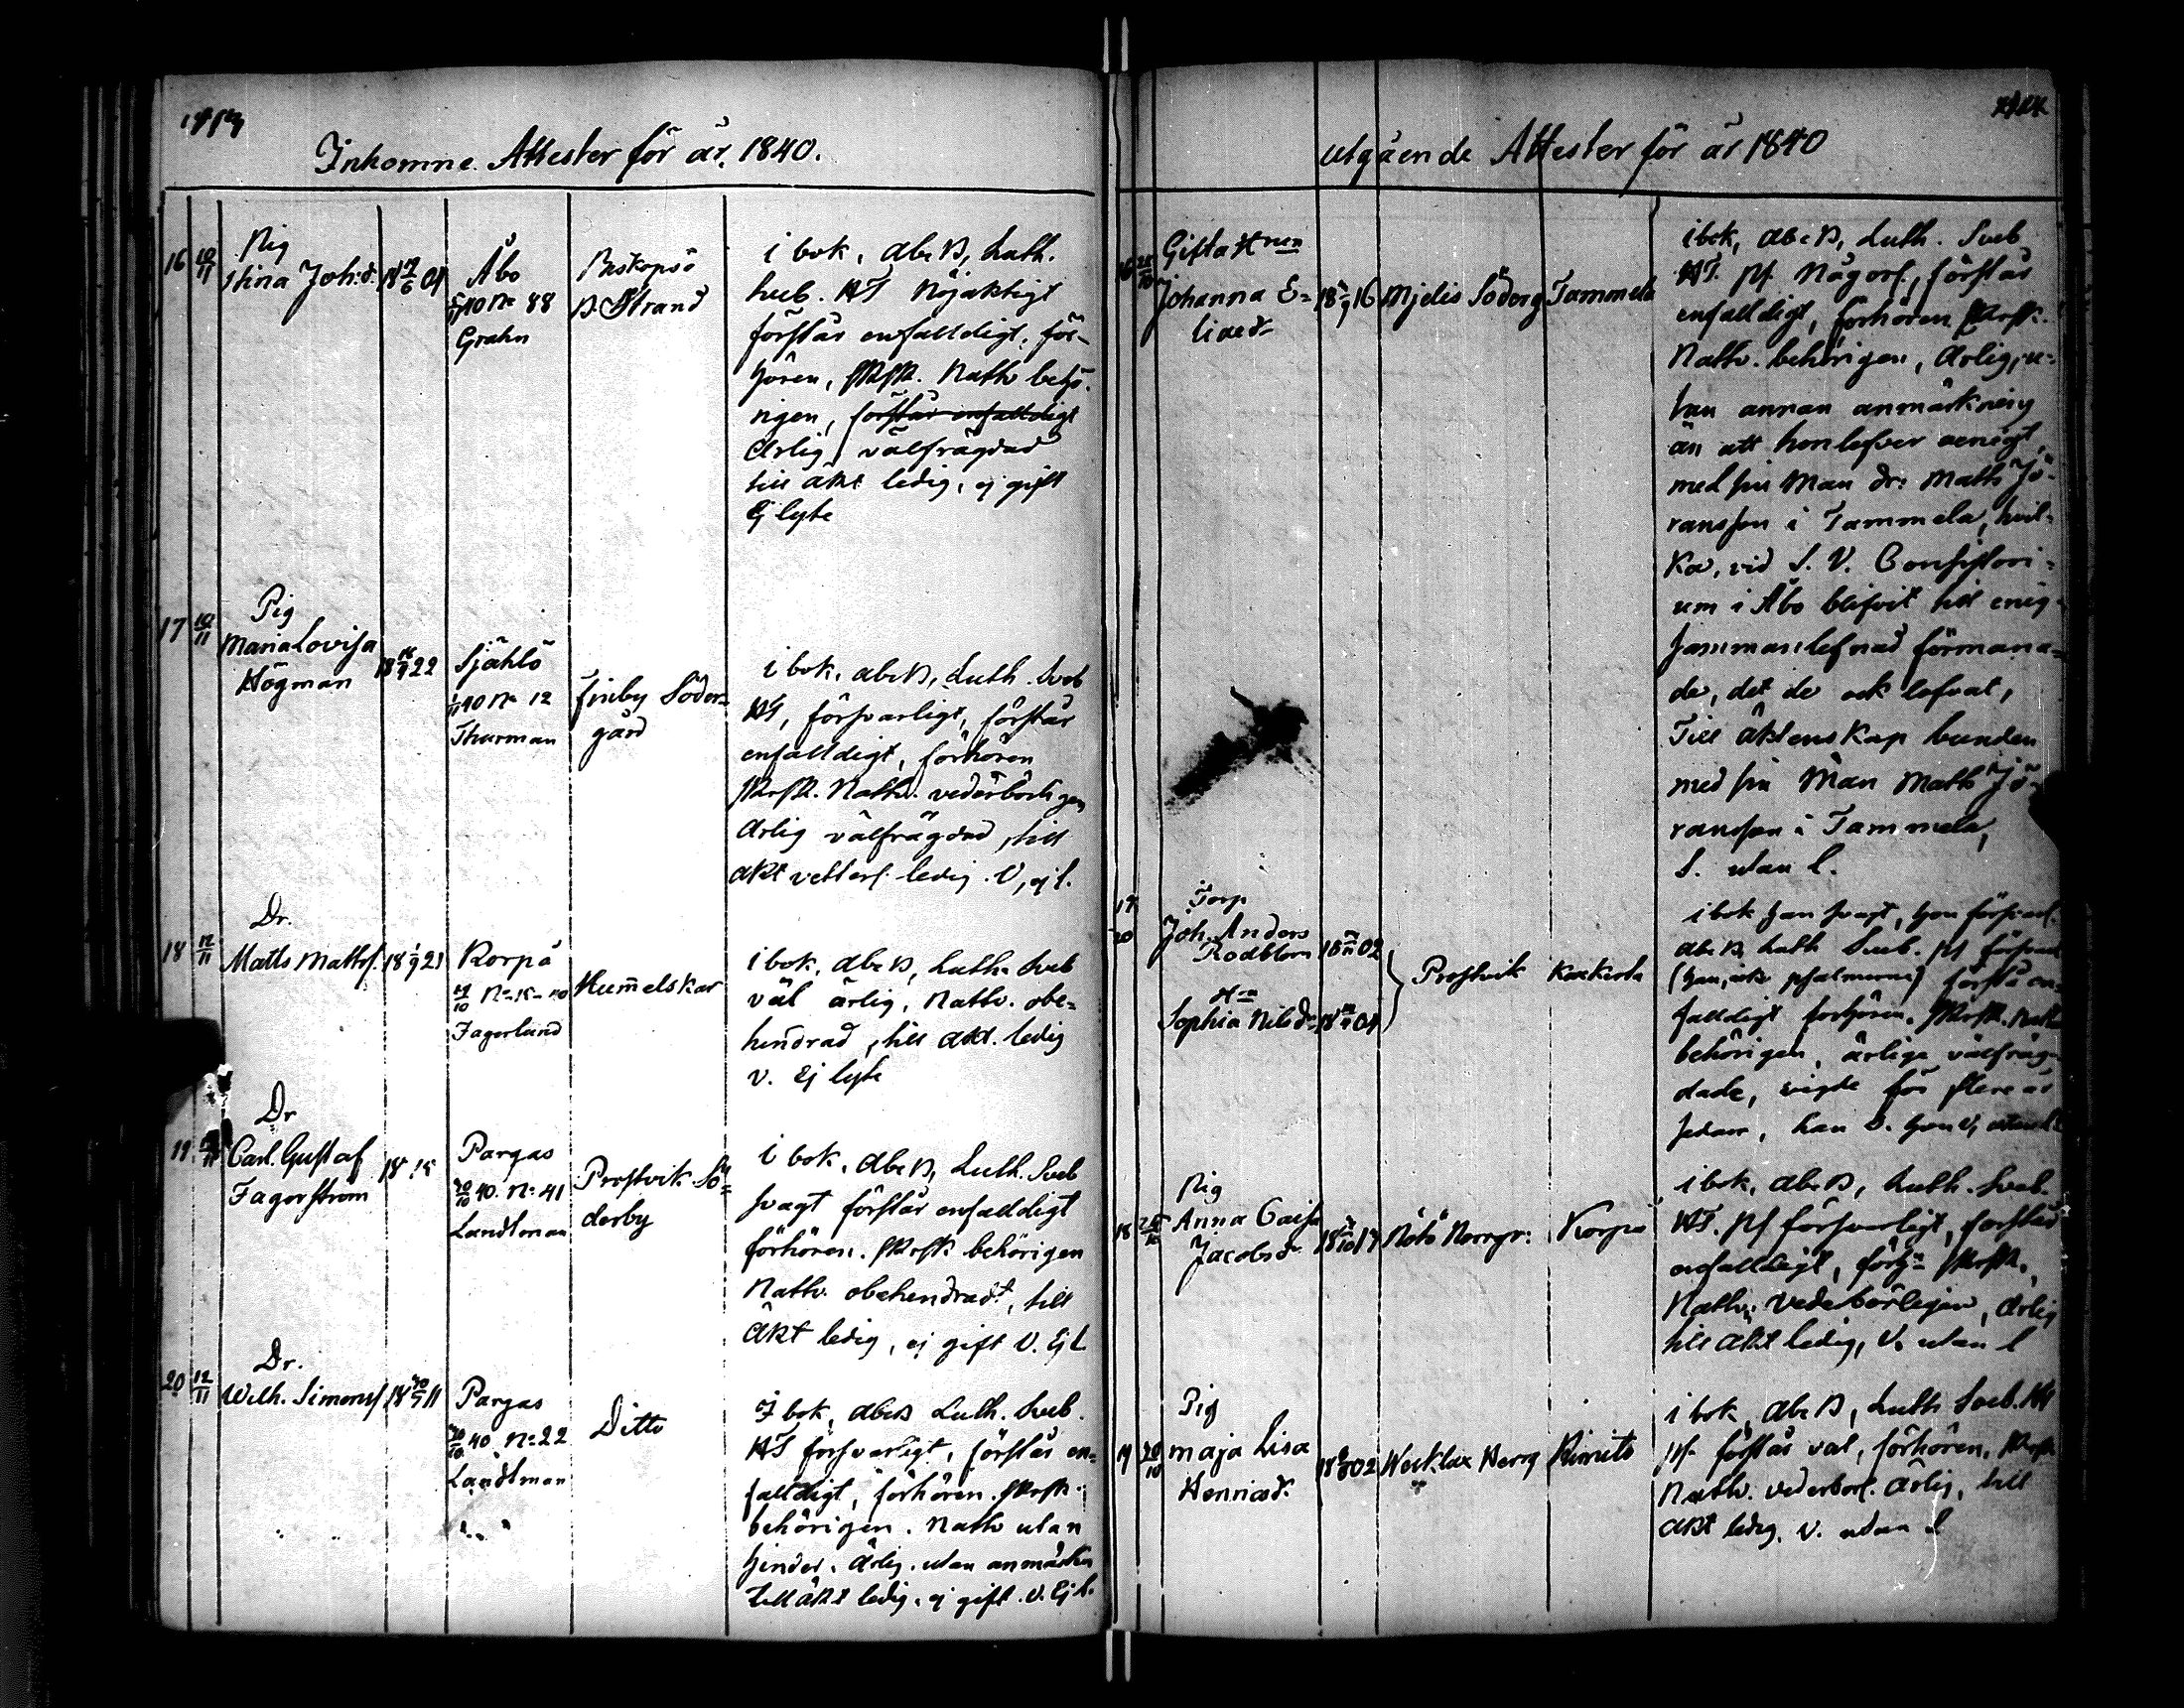 Inkomne Attester för år 1840.
16 10/11
Pig
Stina Joh:d.
Åbo
40 No 88
Grahn
Biskopsö
N. Strand
i bok, abcB, Luth.
Sveb. HT Nöjaktigt
förstår enfalldigt, för-
hören, SkrSk. Nattv behö-
rigen, förstår enfalldigt
ärlig, välfrägdad
till äkt ledig, ej gift
Ej lyte
17 10/11
Pig
Maria Lovisa
Högman
22
Själö
40 No 12
Thurman
Finby Söder-
gård
i bok, abcB, Luth. Sveb
HT, försvarligt, förstår
enfalldigt, förhören
SkrSk. Nattv. vederbörligen
ärlig välfrägdad, till
äkt vetterl. ledig. V, ej l.
18 12/11
Dr.
Matts Mattss.
18 1/9 21
Korpo
Fagerlund
Hummelskar
i bok, abcB, Luth. Sveb
väl ärlig, Nattv. obe-
hindrad, till äkt. ledig
v. Ej lyte
19
Dr
Carl Gustaf
Fagerström
Pargas
40. No 41
Landtman
Prostvik Sö-
derby
i bok, abcB, Luth. Sveb
svagt förstår enfalldigt
förhören. SkrSk behörigen
Nattv. obehindradt, till
äkt ledig, ej gift V. Ej L
20 12/11
Dr.
Wilh. Simonss
11
Pargas
40 No 22
Landtman
Ditto
I bok, abcB Luth. Sveb.
HT försvarligt, förstår en-
falldigt, förhören. SkrSk.
behörigen. Nattv utan
hinder. Ärlig. utan anmärkn
till äkt ledig, ej gift. V. Ej l.
utgående Attester för år 1840
16
Gifta Hun
Johanna E-
liaed-
16
Mjelis Söderg
Tammela
i bok, abcB, Luth. Sveb
HT. Ps. Någorl., förstår
enfalldigt, förhören SkrSk.
Nattv. behörigen, ärlig, u-
tan annan anmärkning
än att hon lefver oenigt
med sin Man dr: Matts Jö-
ransson i Tammela, hvil-
ka, vid S. V. Consistori-
um i Åbo blifvit till enig
sammanlefnad förmana-
de, det de ock lofvat,
Till äktenskap bunden
med sin Man Matts Jö-
ransson i Tammela,
S. utan l.
17
20
Torp
Joh. Anders
Rodblom
02
H-n
Sophia Nilsd-
04
Prostvik
Kakerta
i bok han svagt, hon försvarl.
abcB, Luth Sveb. Ps
förstå en-
falldigt förhören. SkrSk. Nattv
behörigen, ärliga välfräg-
dade, vigde för flere år
sedan, han S. hon V, utan l
18
Pig
Anna Caisa
Jacobsd-
Nötö Norrgr:
Korpo
i bok, abcB, Luth. Sveb.
HT. Ps försvarligt, förstår
enfalldigt, förh-n SkrSk,
Nattv: Vederbörligen, ärlig
till äkt ledig, V. utan l
19
Pig
Maja Lisa
Henriksd.
02
Westlax Herrg
Rimito
i bok, abcB, Luth Sveb. HT
ps. förstår väl, förhören, SkrSk
Nattv. vederbörl. Ärlig, till
äkt ledig, V. utan l